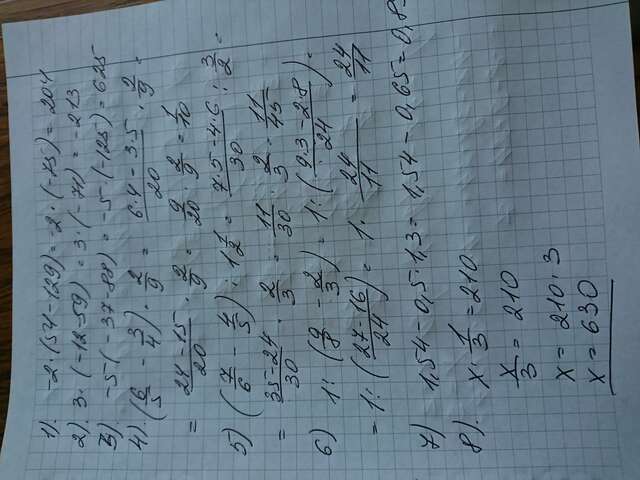 1). -2·(54-129)=-2·(-75)=
2) 3·(-12-59)=3·(-71)=-213
3) -5(-37-88)=-5(-125)=625
4). (6/5 - 3/4)·2/9 = (6·4-3·5)/20 · 2/9 =
= (24-15)/20 · 2/9 = 9/20 · 2/9 = 1/10
5) (7/6 - 4/5) : 1 1/2 = (7·5-4·6)/30 : 3/2 =
= (35-24)/30 · 2/3 = 11/30 · 2/3 = 11/45
6) 1:(9/8 - 2/3) = 1:((9·3-2·8)/24) =
= 1:((27-16)/24) = 1· 24/11 = 24/11
7) 1,54-0,5·1,3=1,54-0,65=0,8
8). x·1/3=210
x/3=210
x=210·3
x=630